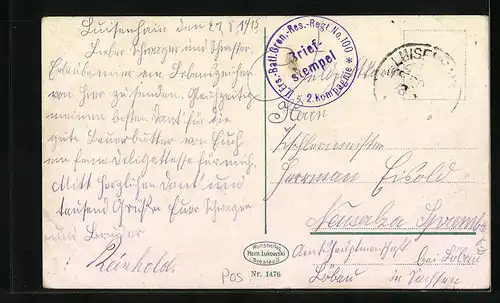 Luisenhain den 29.8.1915
Lieber Schwager und Schwester.
Erlaube mir ein Lebenszeichen
von hier zu senden. Gleichzeitig
meinen besten Dank für die
gute Bauerbutter von Euch
ein feine Dilegattesse für mich.
Mitt Herzlichen Dank und
tausend Grüßen Euer Schwager
und Bruder
Reinhold.
II. Ers.-Batl. Gren.-Res.-Regt. No. 100
Brief-
stempel
* 2. Kompagnie *
Herrn
Tischlermeister
Herrman Eifold
Neusalza
Amtshauptmanschaft bei Löbau
Löbau in Sachsen
Kunstverlag
Herm. Lukowski
Breslau
Nr. 1476
Pos